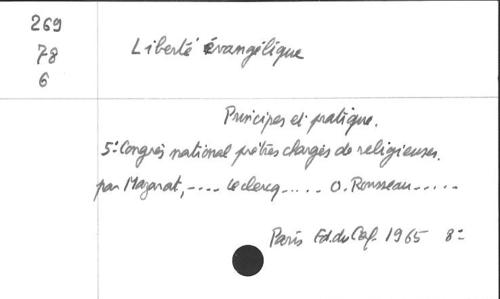 269
78
6
Liberté évangélique
Principes et pratique.
5e Congrès national prêtres chargés de religieuses.
par Mazarat, ---- Leclercq ..... O. Rousseau -----
Paris Ed. du Cerf. 1965 8°